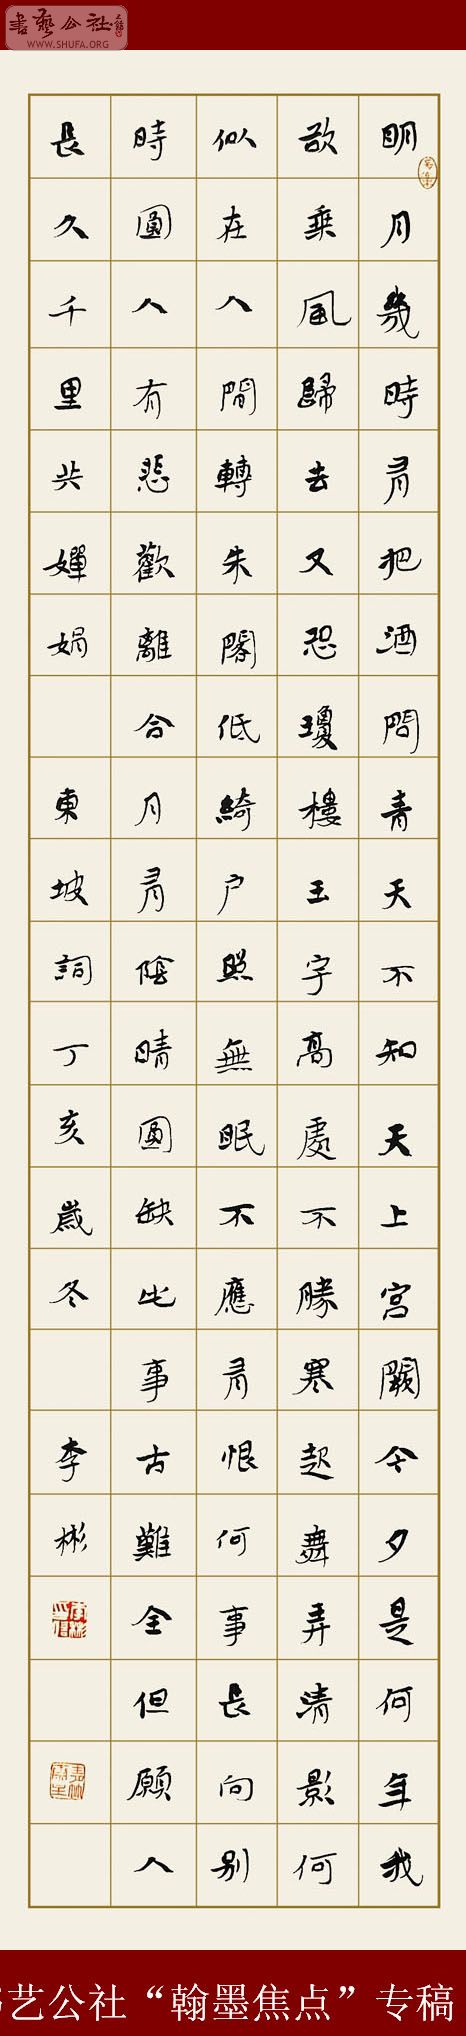 書藝公社
WWW.SHUFA.ORG
明月幾時有把酒問青天不知天上宮闕今夕是何年我
欲乘風歸去又恐瓊樓玉宇高處不勝寒起舞弄清影何
似在人間轉朱閣低綺户照無眠不應有恨何事長向别
時圓人有悲歡離合月有陰晴圓缺此事古難全但願人
長久千里共嬋娟 東坡詞丁亥歲冬 李彬
艺公社“翰墨焦点”专稿